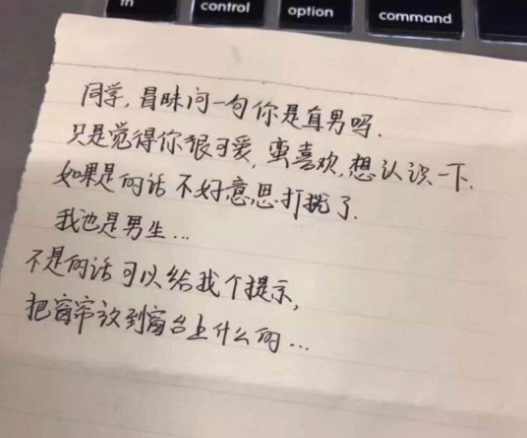 fn control option command
同学,冒昧问一句你是直男吗.
只是觉得你很可爱,蛮喜欢,想认识一下.
如果是的话不好意思打扰了.
我也是男生...
不是的话可以给我个提示,
把窗帘放到窗台上什么的...